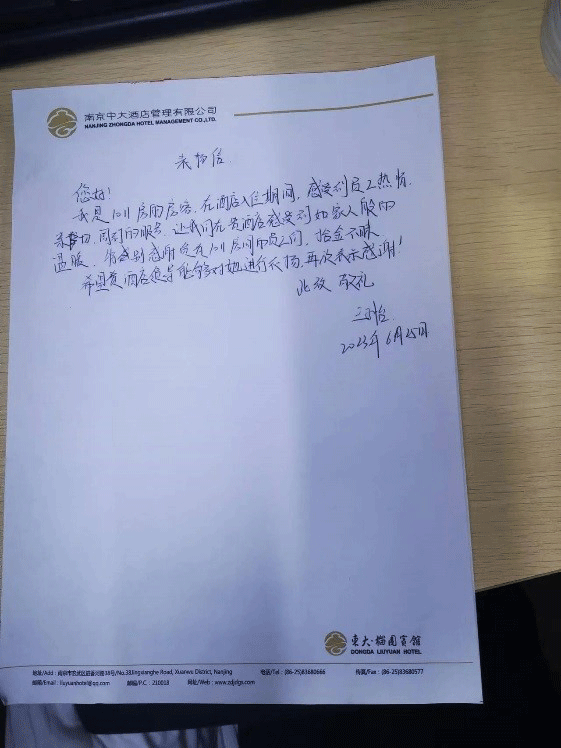 南京中大酒店管理有限公司
NANJING ZHONGDA HOTEL MANAGEMENT CO.,LTD.
表扬信
您好!
我是1011房的房客,在酒店入住期间,感受到员工热情、
亲切、周到的服务,让我们在贵酒店感受到如家人般的
温暖。特别感谢负责1011房间的员工,拾金不昧
希望贵酒店领导能够对她进行表扬,再次表示感谢!
此致 敬礼
2023年6月25日
東大·榴園賓館
DONGDA LIUYUAN HOTEL
地址/Add:南京市玄武区进香河路38号/No.38Jingxianghe Road, Xuanwu District, Nanjing 电话/Tel:(86-25)83680666 传真/Fax:(86-25)83680577
邮箱/Email:liuyuanhotel@qq.com 邮编/P.C.:210018 网址/Web:www.zdjdgs.com